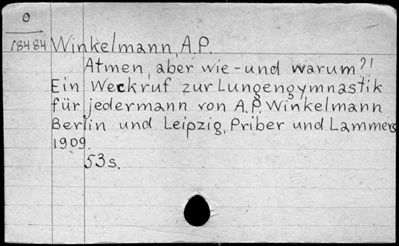 0
18484 Winkelmann, A.P.
Atmen, aber wie - und warum?!
Ein Weckruf zur Lungengymnastik
für jedermann von A.P. Winkelmann
Berlin und Leipzig, Priber und Lammers
1909.
53s.